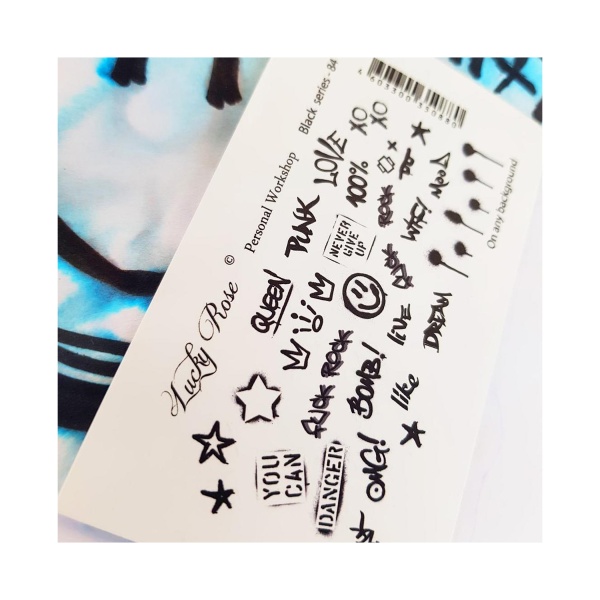 Lucky Rose
© Personal Workshop
Black series - 84
4 603300 850880
XO
XO
LOVE
100%
PUNK
ROCK
WTF!
On any background
NEVER
GIVE
UP
QUEEN
LIVE
DREAM
FUCK ROCK
BOMB!
like
YOU
CAN
DANGER
OMG!